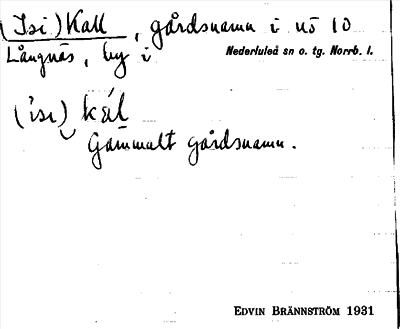 (Isi) Kall, gårdsnamn i nö 10
Långnäs, by i Nederluleå sn o. tg. Norrb. l.
('isi) kál
Gammalt gårdsnamn.
EDVIN BRÄNNSTRÖM 1931